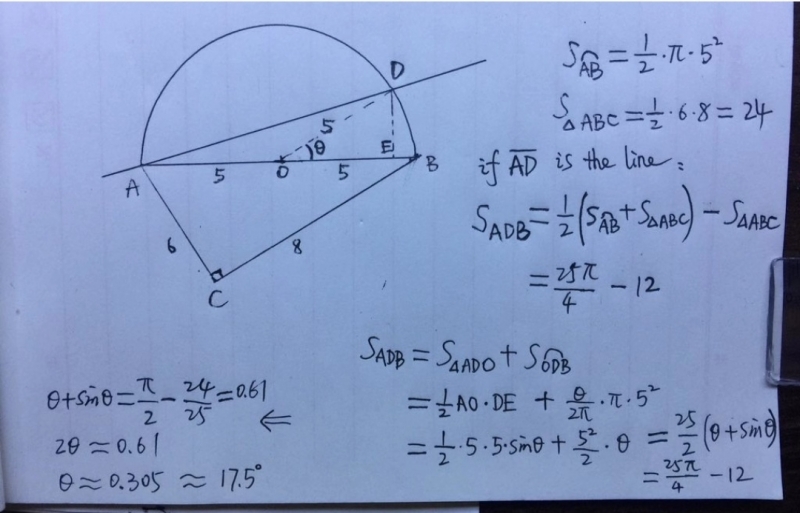 S⌢AB = 1/2 · π · 5²
S△ABC = 1/2 · 6 · 8 = 24
if A̅D̅ is the line:
S ADB = 1/2 (S⌢AB + S△ABC) − S△ABC
= 25π/4 − 12
D
5
θ
E
A
5
O
5
B
6
8
C
S ADB = S△ADO + S⌢ODB
= 1/2 AO · DE + θ/2π · π · 5²
= 1/2 · 5 · 5 · sinθ + 5²/2 · θ = 25/2 (θ + sinθ)
= 25π/4 − 12
θ + sinθ = π/2 − 24/25 = 0.61 ⇐
2θ ≈ 0.61
θ ≈ 0.305 ≈ 17.5°